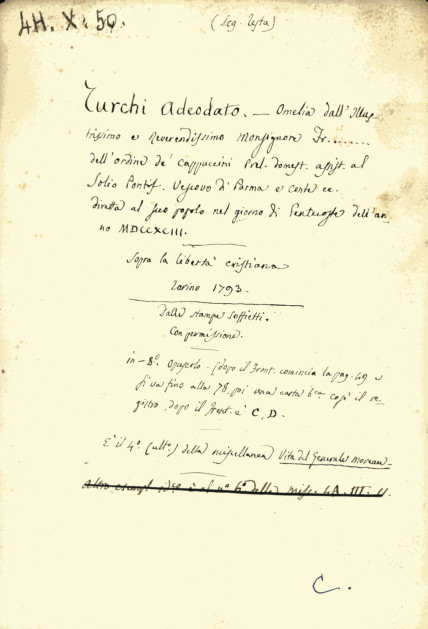 4H. X. 50.
(Leg. Testa)
Turchi Adeodato. — Omelia dall' Illus-
trissimo e Reverendissimo Monsignore Fr........
dell'ordine de' Cappuccini Prel. domest. assist. al
Solio Pontif. Vescovo di Parma e conte ec.
diretta al suo popolo nel giorno di Pentecoste dell'an-
no MDCCXCIII.
Sopra la libertà cristiana
Torino 1793.
Dalle stampe Soffietti.
Con permissione.
in-8°. Opuscolo - (dopo il Front. comincia la pag. 49 e
si va fino alla 78, poi una carta b.ca così il re-
gistro, dopo il front. è C, D.
È il 4° (ult°.) della miscellanea Vita del Generale Moreau.
Altro esempl. è al n° 6° della misc. 4A. III. 11.
C.